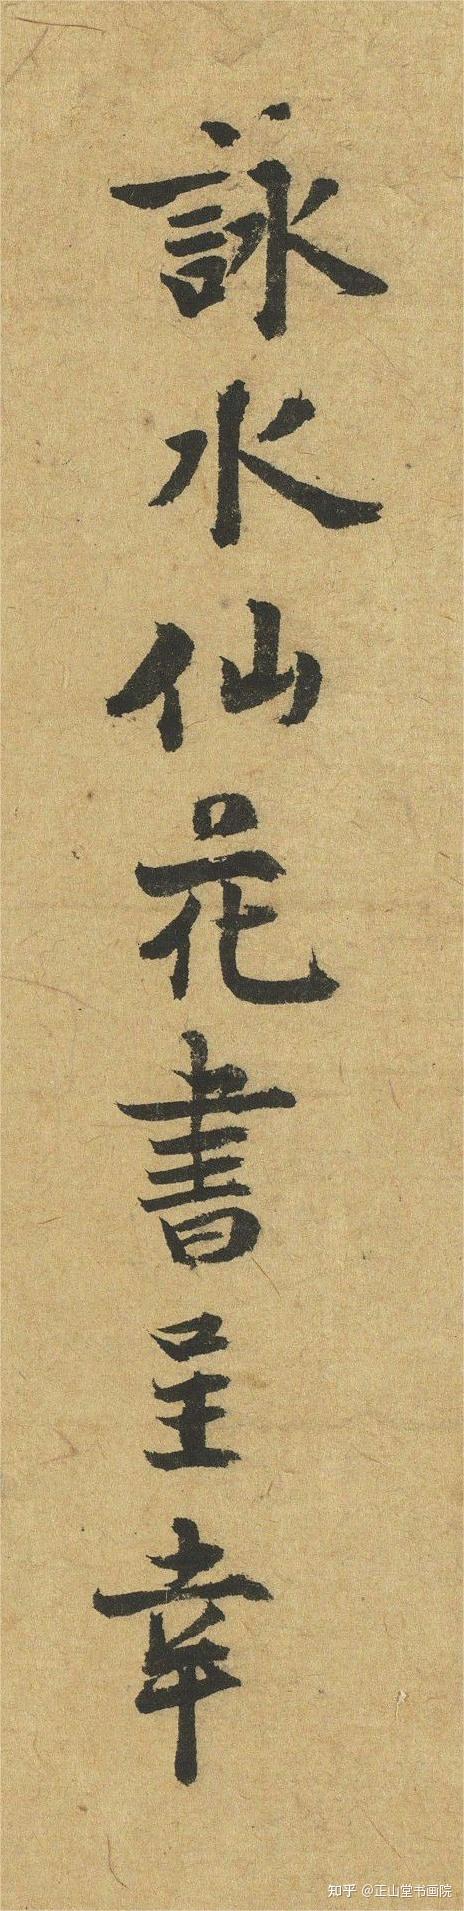 詠水仙花書呈幸
知乎 @正山堂书画院